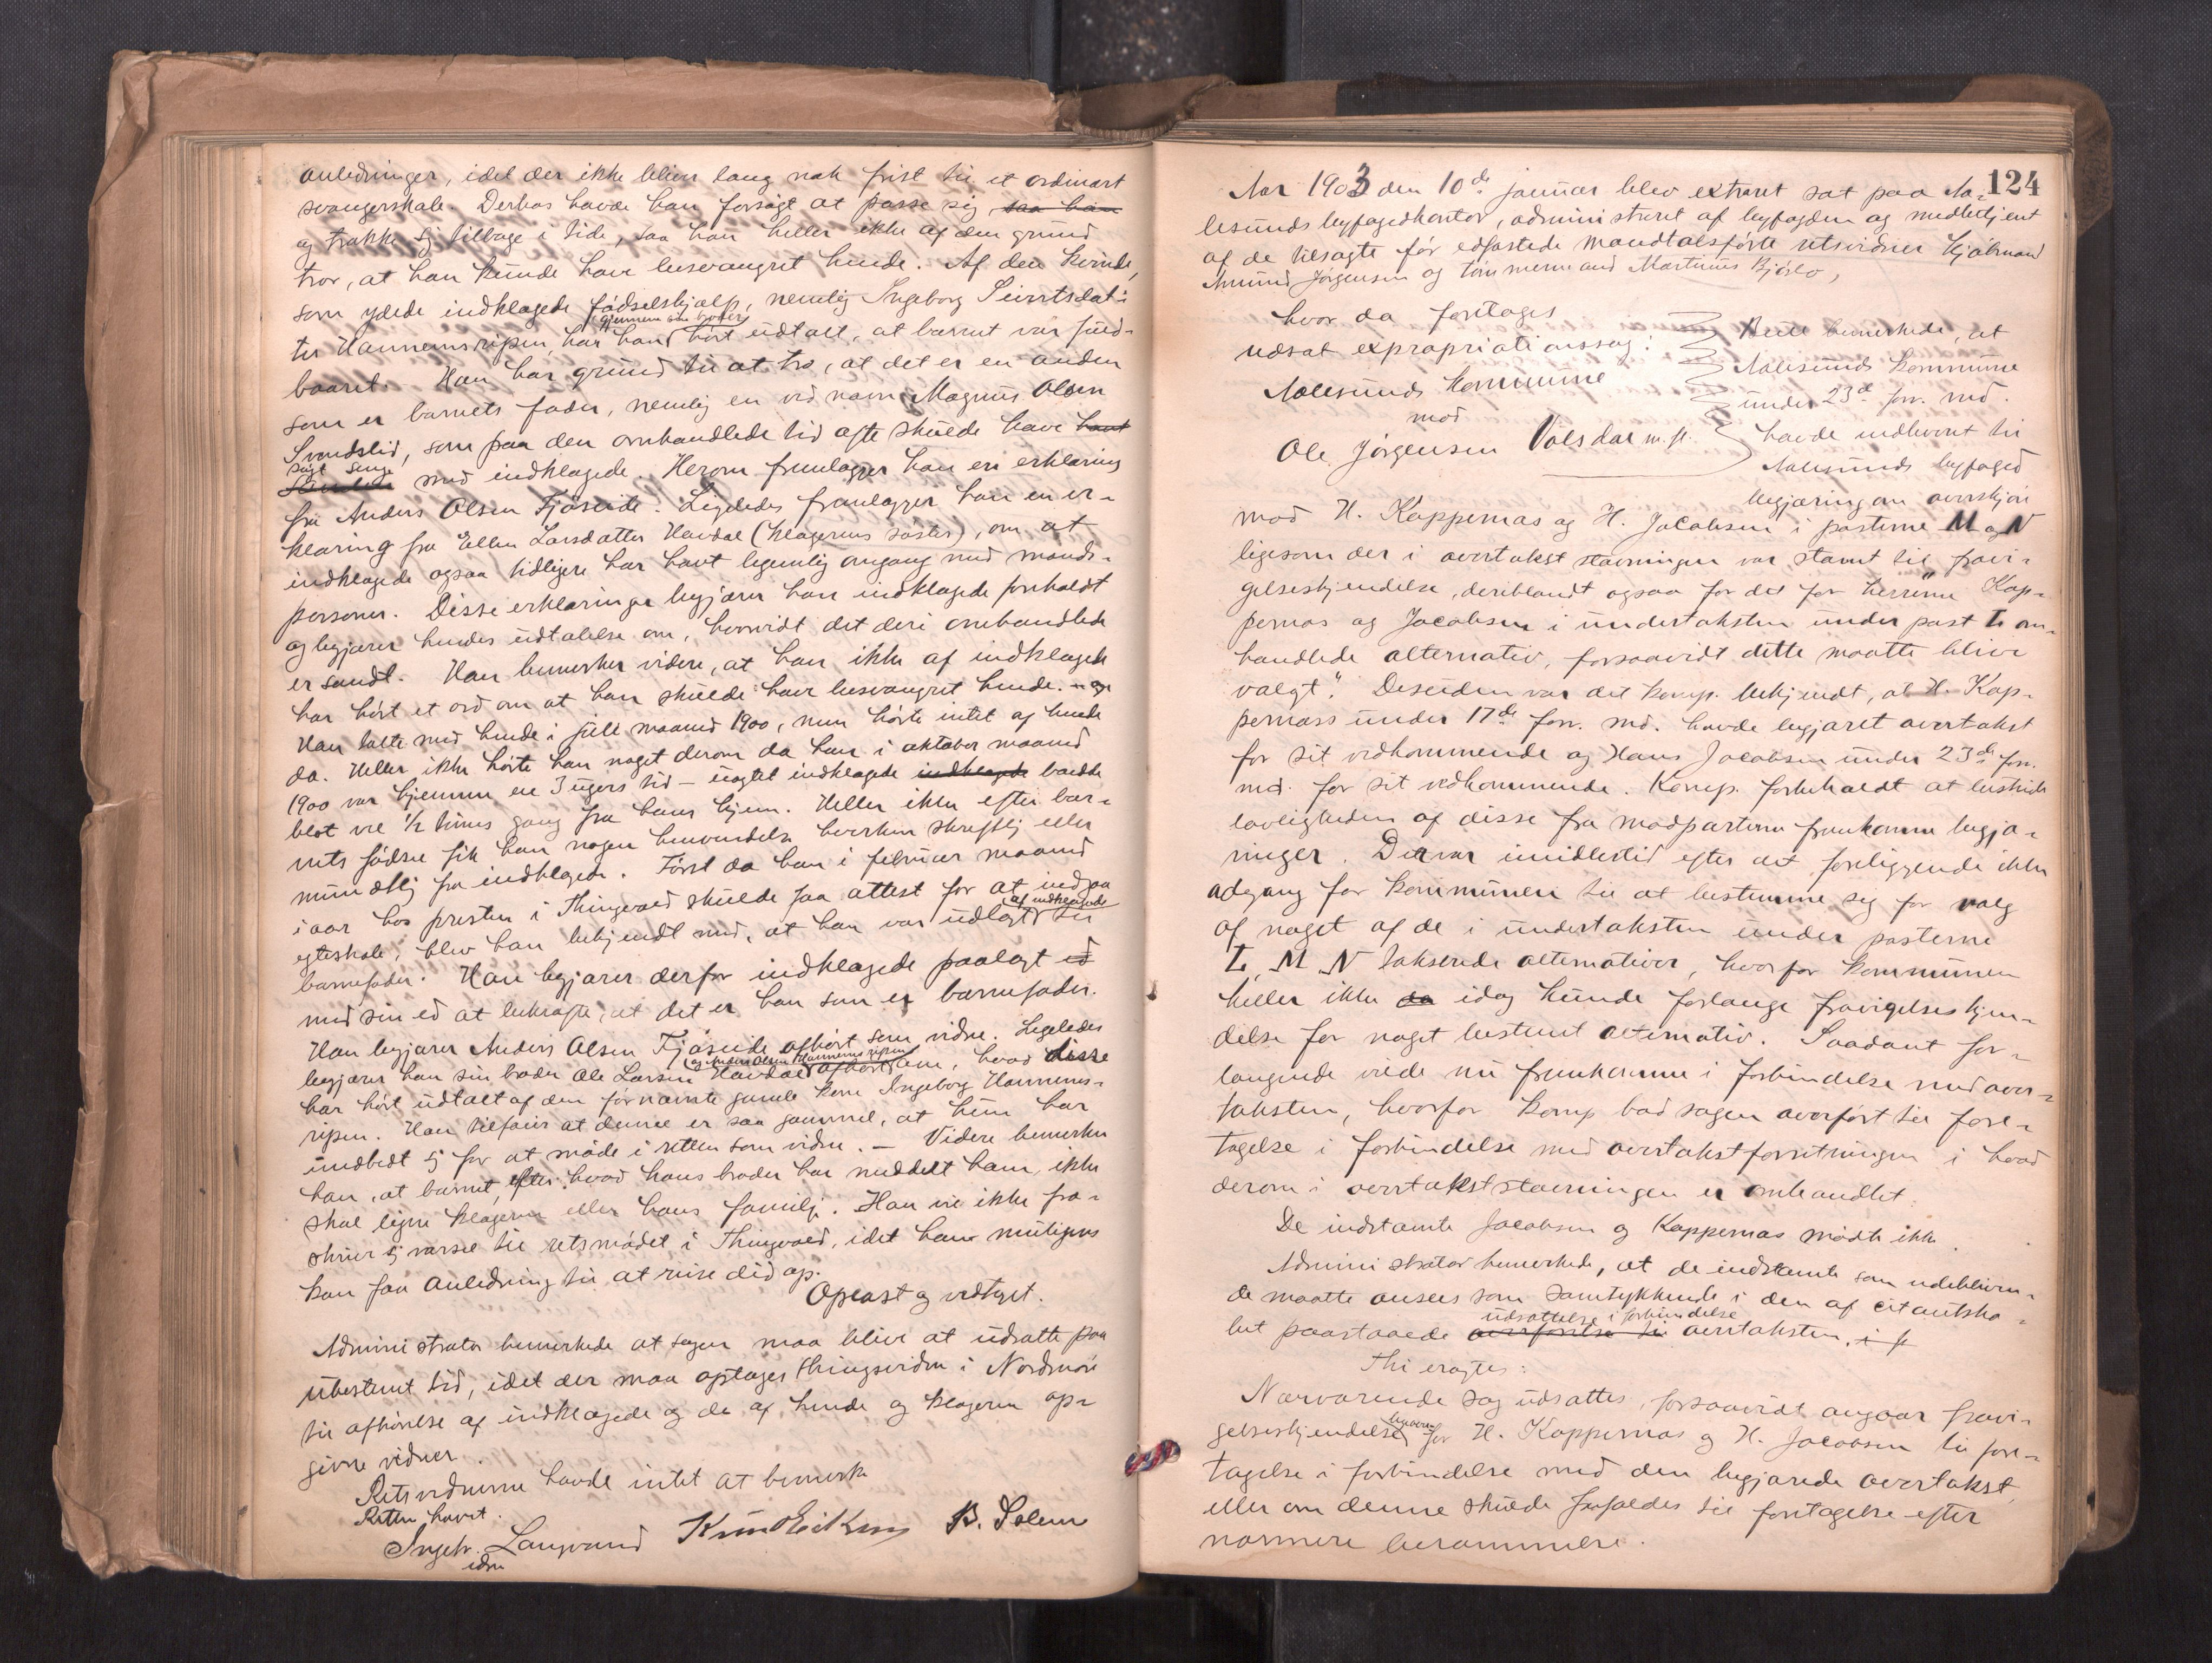 anledninger, idet der ikke bliver lang nok frist til et ordinært
svangerskab. Derhos havde han forsøgt at passe sig, saa han
og trække sig tilbage i tide, saa han heller ikke af den grund
tror, at han kunde have besvangret hende. Af den kvinde,
som ydede indklagede fødselshjælp, nemlig Ingeborg Sivertsdat-
ter Hannemsripen, har han gjennem sin broder hørt udtalt, at barnet var fuld-
baaret. Han har grund til at tro, at det er en anden
som er barnets fader, nemlig en ved navn Magnus Olsen
Svendslid, som paa den omhandlede tid ofte skulde have havt
søgt seng med indklagede. Herom fremlægger han en erklæring
fra Anders Olsen Fjøseide. Ligeledes fremlægger han en er-
klæring fra Ellen Larsdatter Havdal (klagerens søster), om at
indklagede ogsaa tidligere har havt legemlig omgang med mands-
personer. Disse erklæringer begjærer han indklagede foreholdt
og begjærer hendes udtalelse om, hvorvidt det deri omhandlede
er sandt. Han bemerker videre, at han ikke af indklagede
har hørt et ord om at han skulde have besvangret hende. – og
Han talte med hende i juli maaned 1900, men hørte intet af hende
da. Heller ikke hørte han noget derom da han i oktober maaned
1900 var hjemme en 3 ugers tid – uagtet indklagede indklagede boede
blot vel 1/2 times gang fra hans hjem. Heller ikke efter bar-
nets fødsel fik han nogen henvendelse hverken skriftlig eller
mundtlig fra indklagede. Først da han i februar maaned
i aar hos presten i Thingvold skulde faa attest for at indgaa
egteskab, blev han bekjendt med, at han var udlagt af indklagede til
barnefader. Han begjærer derfor indklagede paalagt ed
med sin ed at bekræfte, at det er han som er barnefader.
Han begjærer Anders Olsen Fjøseide afhørt som vidne. Ligeledes
begjærer han sin broder Ole Larsen Havdal og Anders Olsen Hannemsripen afhørt om, hvad disse
har hørt udtalt af den fornævnte gamle kone Ingeborg Hannems-
ripen. Han tilføier at denne er saa gammel, at hun har
undbedt sig for at møde i retten som vidne. – Videre bemerker
han, at barnet, efter hvad hans broder har meddelt ham, ikke
skal ligne klageren eller hans familje. Han vil ikke fra-
skrive sig varsel til retsmødet i Thingvold, idet han muligens
kan faa anledning til at reise did op.
Oplæst og vedtaget.
Administrator bemerkede at sagen maa blive at udsætte paa
ubestemt tid, idet der maa optages thingsvidne i Nordmøre
til afhørelse af indklagede og de af hende og klageren op-
givne vidner.
Retsvidnerne havde intet at bemerke
Retten hævet.
Ingebr. Langvand Knud Eiksen B. Solem
edsv
124
Aar 1903 den 10de januar blev extraret sat paa Aa-
lesunds byfogedkontor, administreret af byfogden og medbetjent
af de tilsagte før edfæstede mandtalsførte retsvidner kjøbmand
Amund Jørgensen og tømmermand Martinus Bjørlo,
hvor da foretages
udsat expropriationssag:
Aalesunds kommune
mod
Ole Jørgensen Volsdal m. fl.
Bull bemerkede, at
Aalesunds kommune
under 23de forr. md.
havde indlevert til
Aalesunds byfoged
begjæring om overskjøn
mod H. Koppernæs og H. Jacobsen i posterne M og N
ligesom der i overtakst stævningen var stævnt til fravi-
gelseskjendelse, deriblandt ogsaa for det for herrerne „Kop-
pernæs og Jacobsen i undertaksten under post L om-
handlede alternativ, forsaavidt dette maatte blive
valgt". Desuden var det komp. bekjendt, at H. Kop-
pernæss under 17de forr. md. havde begjæret overtakst
for sit vedkommende og Hans Jacobsen under 23de forr.
md. for sit vedkommende. Komp. forbeholdt at bestride
lovligheden af disse fra modparterne fremkomne begjæ-
ringer. Der var imidlertid efter det foreliggende ikke
adgang for kommunen til at bestemme sig for valg
af noget af de i undertaksten under posterne
L, M, N takserede alternativer, hvorfor kommunen
heller ikke da idag kunde forlange fravigelseskjen-
delse for noget bestemt alternativ. Saadant for-
langende vilde nu fremkomme i forbindelse med over-
taksten, hvorfor komp bad sagen overført til fore-
tagelse i forbindelse med overtakstforretningen i hvad
derom i overtakststævningen er omhandlet.
De indstævnte Jacobsen og Koppernæs mødte ikke.
Administrator bemerkede, at de indstævnte som udeblivne-
de maatte ansees som samtykkende i den af citantska-
bet paastaaede udsættelse i forbindelse overførelse til overtaksten. i f
Thi eragtes:
Nærværende sag udsættes, forsaavidt angaar fravi-
gelseskjendelse for H. Koppernæs og H. Jacobsen til fore-
tagelse i forbindelse med den begjærede overtakst,
eller om denne skulde frafaldes til foretagelse efter
nærmere berammelse.